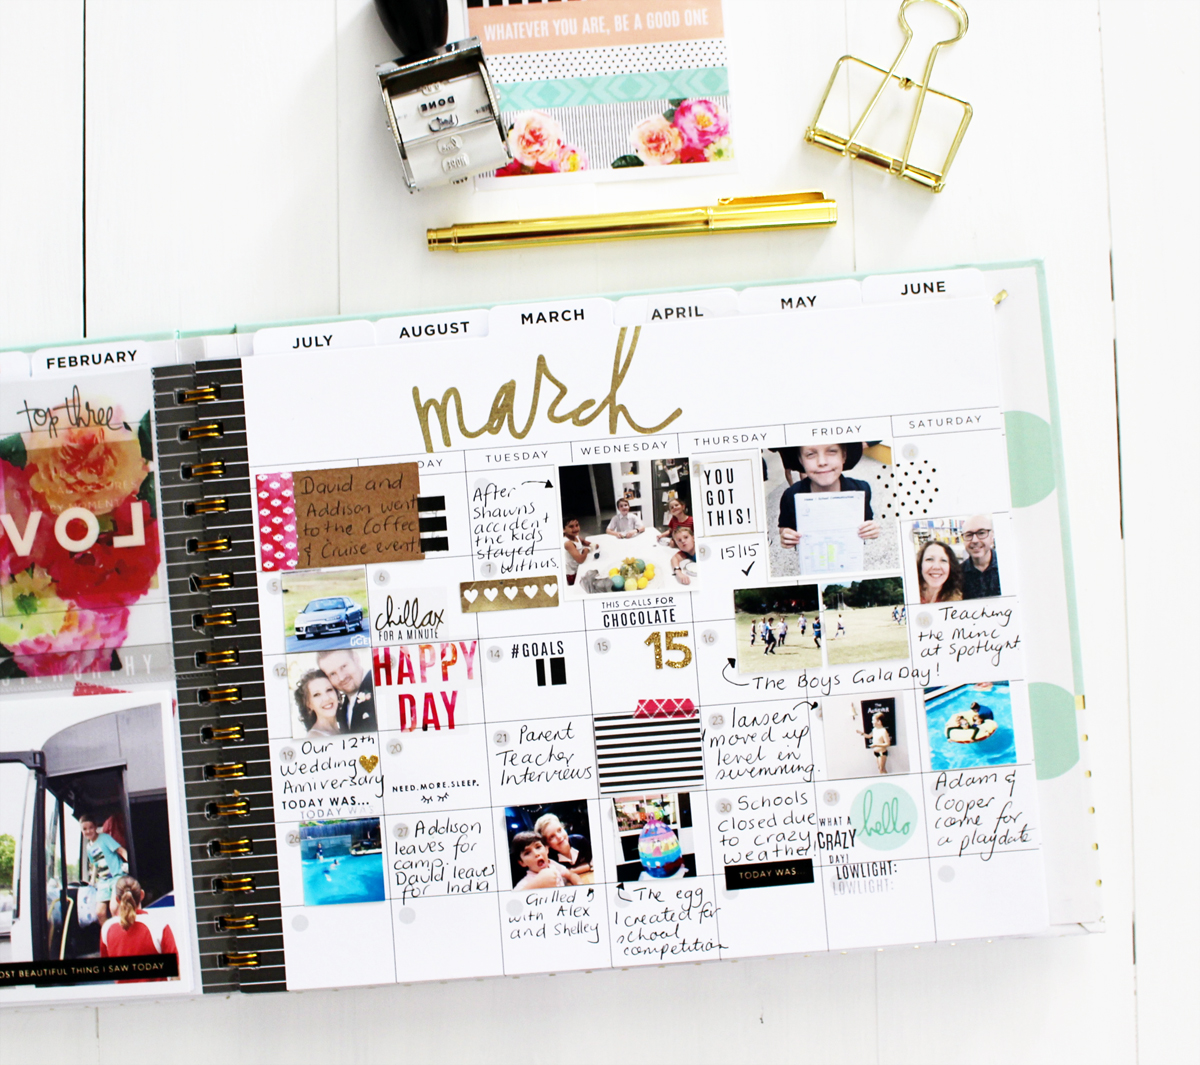 WHATEVER YOU ARE, BE A GOOD ONE
DONE
FEBRUARY
JULY
AUGUST
MARCH
APRIL
MAY
JUNE
top three
LOV
march
DAY
TUESDAY
WEDNESDAY
THURSDAY
FRIDAY
SATURDAY
David and
Addison went
to the Coffee
& Cruise event
After
Shawns
accident
the kids
stayed
with us.
YOU
GOT
THIS!
15/15
5
6
7
9
chillax
FOR A MINUTE
THIS CALLS FOR
CHOCOLATE
12
HAPPY
DAY
14
#GOALS
15
15
16
The Boys Gala Day!
Teaching
the Minc
at Spotlight
19
Our 12th
Wedding
Anniversary
TODAY WAS...
TODAY WAS
20
NEED.MORE.SLEEP.
21
Parent
Teacher
Interviews
23
Jansen
moved up
level in
swimming.
Adam &
Cooper
come for
a playdate
26
27
Addison
leaves for
camp.
David leaves
for India
Grilled
with Alex
and Shelley
The egg
I created for
school
competition
30
Schools
closed due
to crazy
weather!
TODAY WAS...
31
WHAT A
CRAZY
DAY!
hello
LOWLIGHT:
LOWLIGHT:
OST BEAUTIFUL THING I SAW TODAY